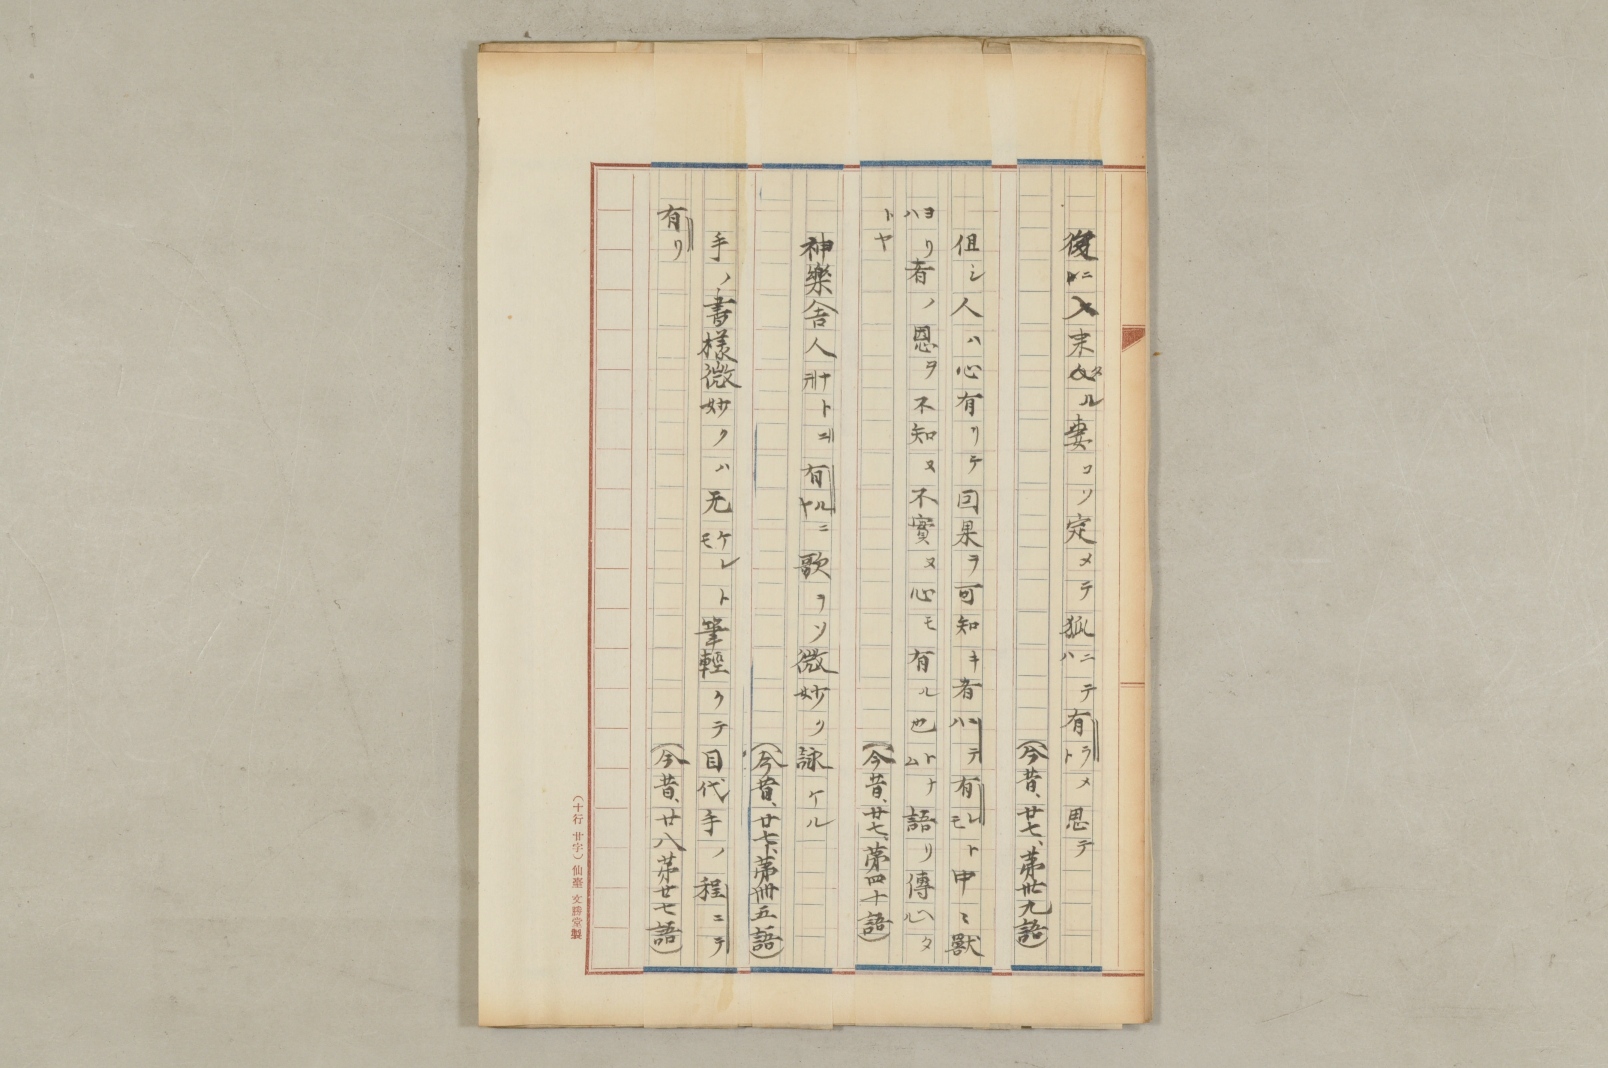 後ニ入来タル妻コソ定メテ狐ニハテ有ラメト思テ
(今昔、廿七、第卅九語)
但シ人ハ心有リテ因果ヲ可知キ者ニハテ有レモト申ミ獸
ヨリハ者ノ恩ヲ不知ヌ不實ヌ心モ有ル也トナム語リ傳ヘタル
トヤ
(今昔、廿七、第四十語)
神樂舍人ナトニ有ルヤニ歌ヲソ微妙ク詠ケル
(今昔、廿七、第卌五語)
手ノ書樣微妙クハ无ケレモト筆輕クテ目代手ノ程ニテ
有リ
(今昔、廿八第廿七語)
(十行 廿字) 仙臺 文勝堂製